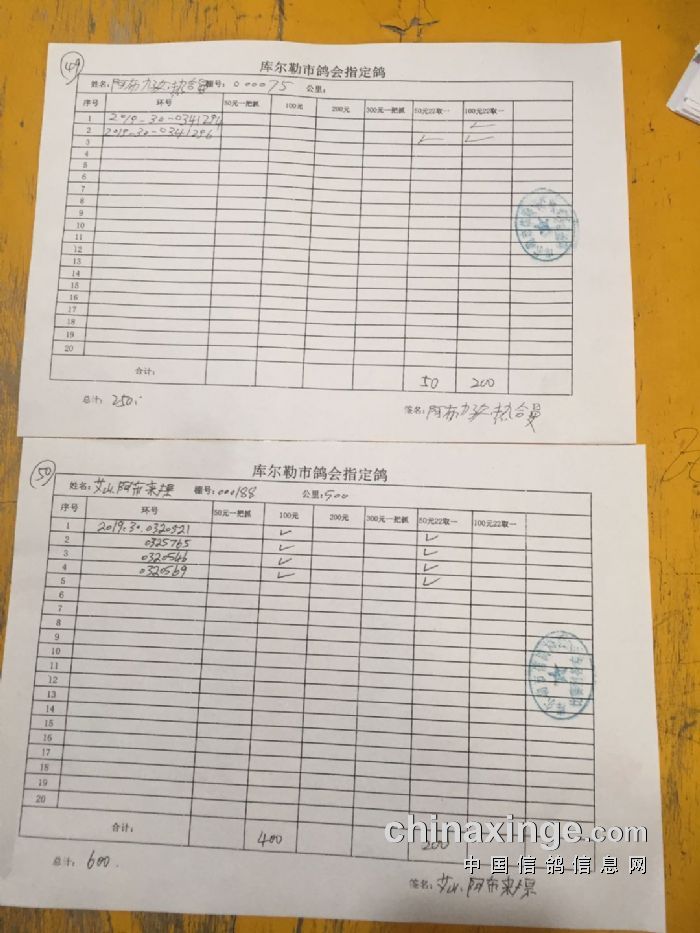 49
库尔勒市鸽会指定鸽
姓名: 阿布力孜·热合曼 棚号: 000075 公里:
序号 环号 50元一把抓 100元 200元 300元一把抓 50元22取一 100元22取一
1 2019-30-0341294 ✓
2 2019-30-0341296 ✓ ✓
3
4
5
6
7
8
9
10
11
12
13
14
15
16
17
18
19
20
合计: 50 200
总计: 250
签名: 阿布力孜·热合曼
50
库尔勒市鸽会指定鸽
姓名: 艾山·阿布 棚号: 000188 公里: 500
序号 环号 50元一把抓 100元 200元 300元一把抓 50元22取一 100元22取一
1 2019.30.0320521 ✓ ✓
2 0325765 ✓ ✓
3 0320546 ✓ ✓
4 0320569 ✓ ✓
5
6
7
8
9
10
11
12
13
14
15
16
17
18
19
20
合计: 400 200
总计: 600.
签名: 艾山·阿布
chinaxinge.com
中国信鸽信息网